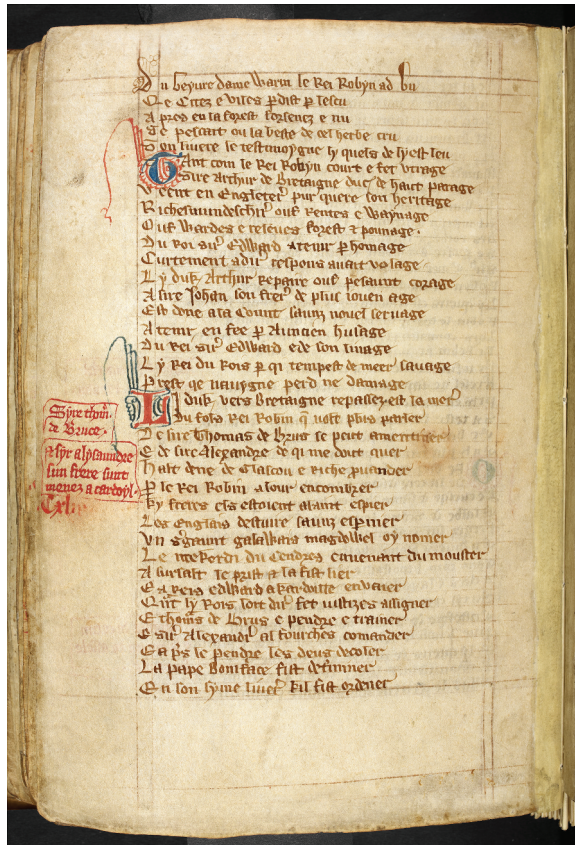 Du beyure dame Warin le Rei Robyn ad bu
Qe Citez e viles perdist p lescu
Apres en la forest forsenez e nu
Se pescart ou la beste de cel herbe cru
Son livere le testmoygne ly quels de ly est leu
Tant com le Rei Robyn court e fet utrage
Sire Arthur de Bretaigne duc de haut parage
Vient en Engleter pur quere son heritage
Richesmundeschir oue Rentes e waynage
Oue wardes e releves forest e pounage.
Du Roi sir Edward a tenir p homage
Curtement a dir respons avait volage
Ly duk Arthur repaire oue pesaunt corage
A sire Johan son frer de plus ioven age
Est done a la Count saunz novel servage
A tenir en fee p Auncien husage
Du Rei sir Edward e de son linage
Ly Rei du Rois p qi tempest de meer savage
Prest qe navygne perd ne damage
Li duk vers Bretaigne repassez est la mer
Du fols Rei Robin q volt plus parler
De sire Thomas de Brus se peut amentiner
E de sire Alexandre de qi me dout quer
Halt dene de Glascou e Riche pvander
P le Rei Robin alour encombrer
Ky freres els estoient alaint espier
Les Englais destuire saunz espnier
Un sergaunt galawais magdowel oy nomer
Le nite Kordi du Cendres en avenant du mouster
A sursalt le prist et la fist lier
E a Reis edward a kardoille envaier
Qunt ly Rois sort dur fet iustizes assigner
E thomas de Brus e pendre e trainer
E sir Alexandr al fourches comander
E a ps le pendre les deus decoler
La pape Boniface fist determiner
En son hyme liver kil fist ordener
Syre thom
de Bruce.
et syr alysaundre
sun frere sunt
menez a cardoyl.